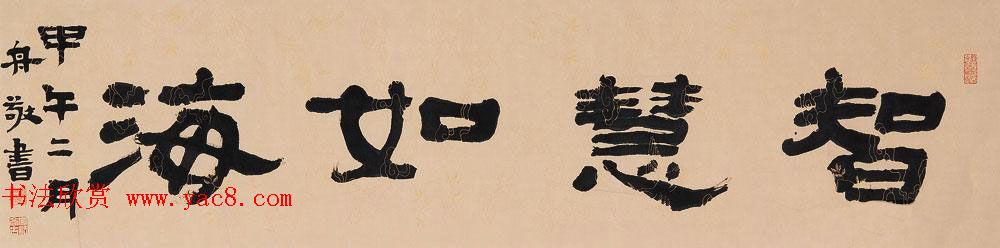 智慧如海
甲午二月
舟敬書
书法欣赏 www.yac8.com